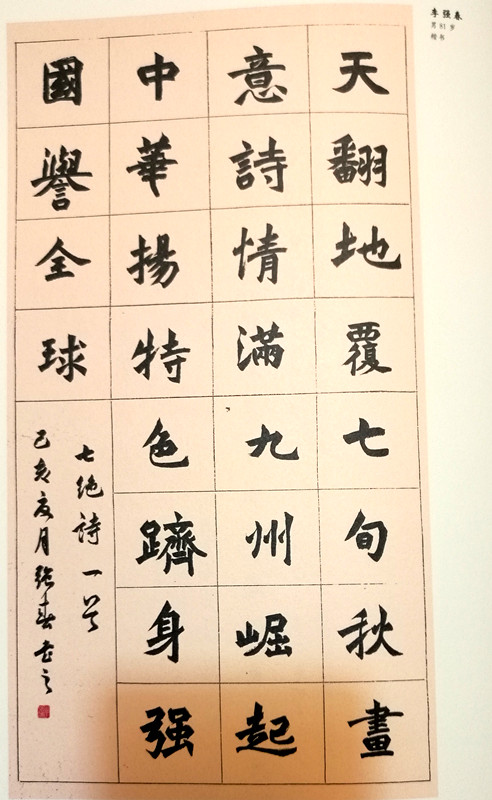 李强春
男 81 岁
楷书
天翻地覆七旬秋畫
意詩情滿九州崛起
中華揚特色躋身强
國譽全球
七绝詩一首
己亥夏月强春书之